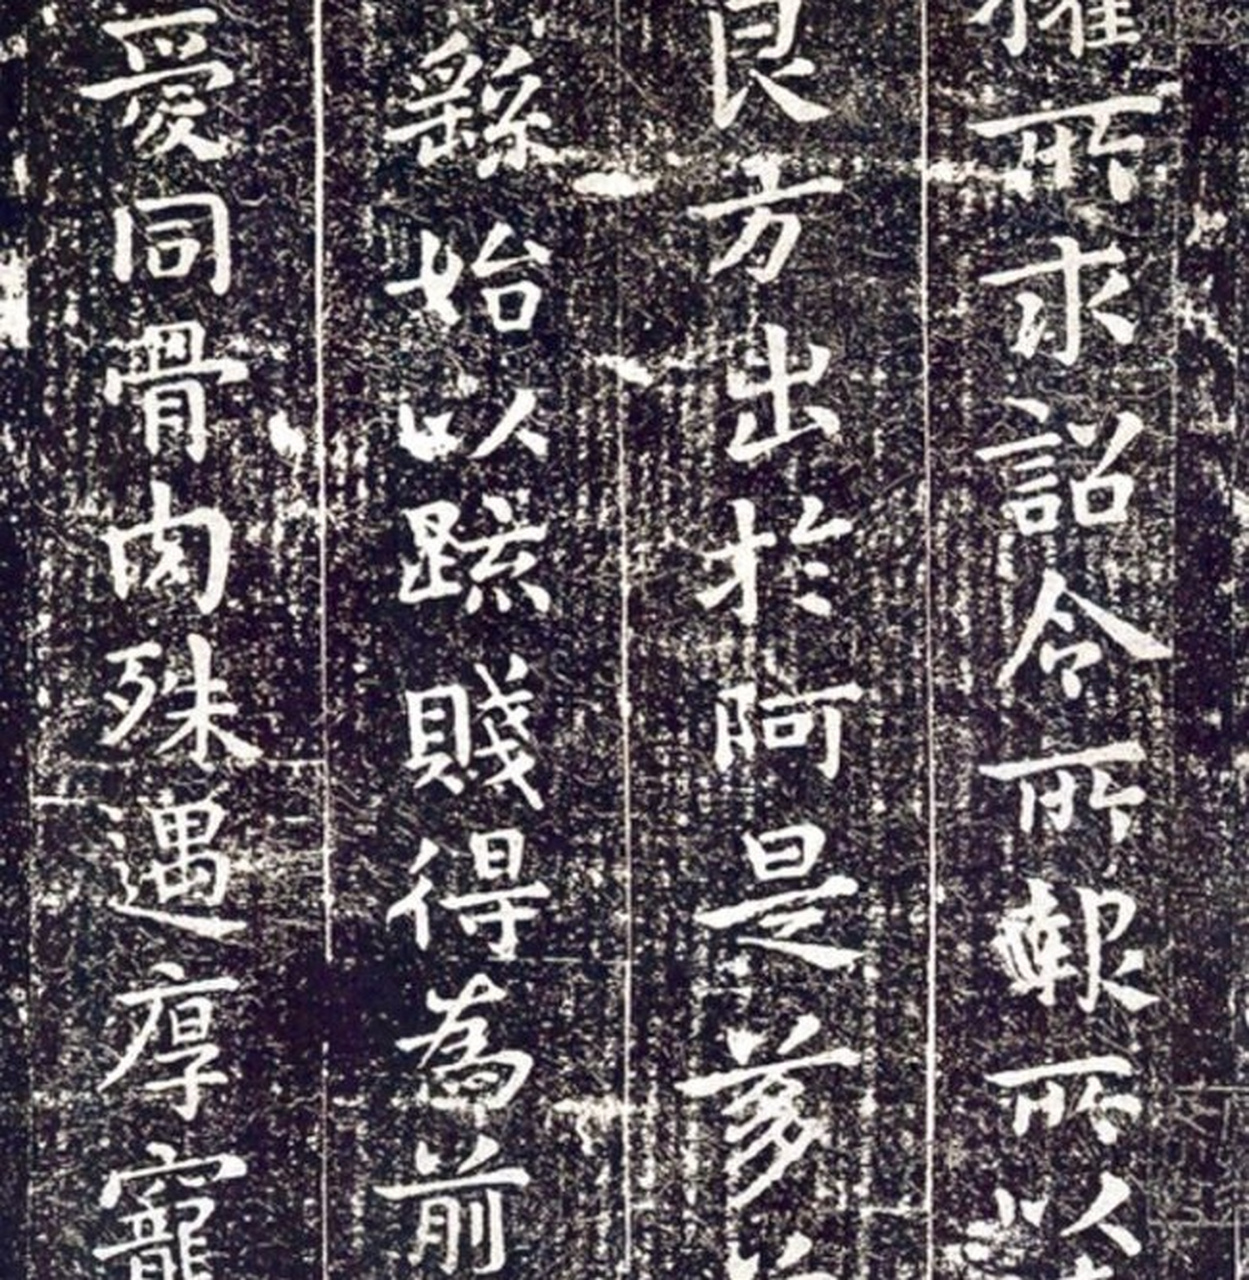 權所求詔令所報所以
良方出於阿是芻
繇始以䟽賤得為前
愛同骨肉殊遇厚寵